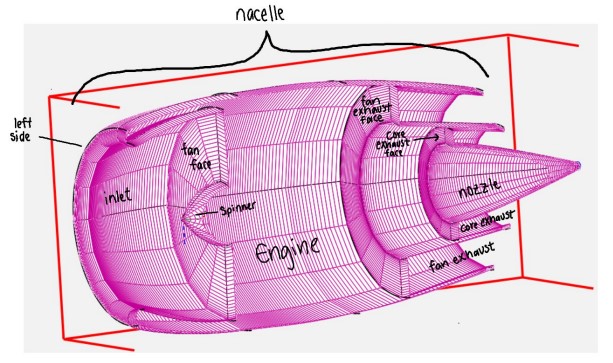 nacelle
left
side
inlet
fan
face
Spinner
Engine
fan
exhaust
face
Core
exhaust
face
nozzle
core exhaust
fan exhaust